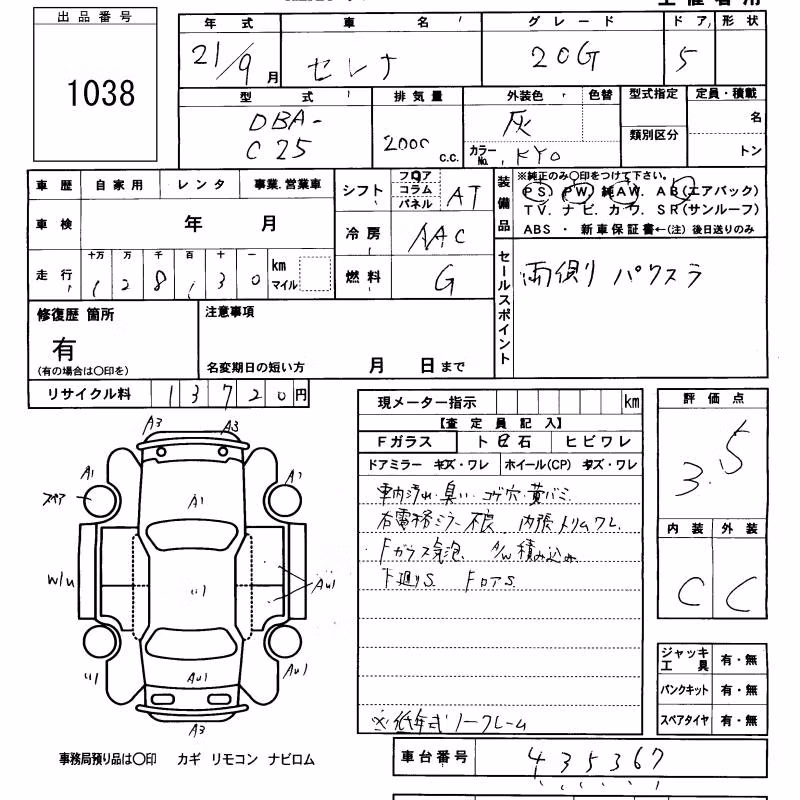 出品番号
1038
年式 車名 グレード ドア 形状
21/9月 セレナ 20G 5
型式 排気量 外装色 色替 型式指定 定員・積載
DBA-C25 2000 c.c. 灰 カラーNo. KY0 類別区分 名 トン
車歴 自家用 レンタ 事業.営業車
車検 年 月
走行 十万 万 千 百 十 一 km マイル
128130
シフト フロア コラム パネル AT
冷房 AAC
燃料 G
装備品
※純正のみ○印をつけて下さい。
PS PW 純AW. AB(エアバック)
TV. ナビ. カワ. SR(サンルーフ)
ABS ・ 新車保証書←(注) 後日送りのみ
セールスポイント
両側 パワスラ
修復歴 箇所
有
(有の場合は○印を)
注意事項
名変期日の短い方 月 日まで
リサイクル料 13720円
現メーター指示 km
【査定員記入】
Fガラス トビ石 ヒビワレ
ドアミラー キズ・ワレ ホイール(CP) キズ・ワレ
車内汚れ・臭い・コゲ穴・黄バミ
右電格ミラー不良 内張トリムワレ
Fガラス気泡 A/W積み込み
下廻りS FロアS
※低年式ノーフレーム
評価点
3.5
内装 外装
C C
ジャッキ工具 有・無
パンクキット 有・無
スペアタイヤ 有・無
車台番号 435367
A3 A3
A1 A1 A1
スペア
W/U
AU1
AU1 AU1
A3
事務局預り品は○印 カギ リモコン ナビロム